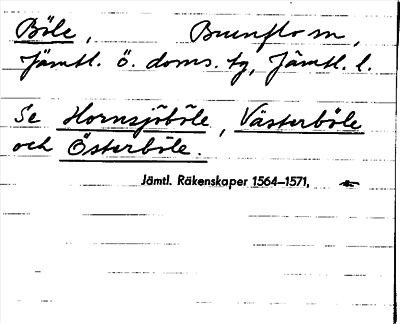 Böle, Brunflo sn,
Jämtl. ö. doms. tg, Jämtl. l.
Se Hornsjöböle, Västerböle
och Österböle.
Jämtl. Räkenskaper 1564–1571,